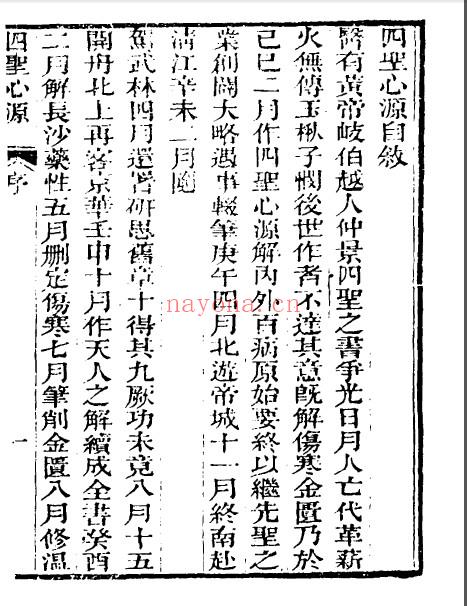 四聖心源自敘
醫有黃帝岐伯越人仲景四聖之書爭光日月人亡代革薪
火無傳玉楸子憫後世作者不達其意既解傷寒金匱乃於
己巳二月作四聖心源解內外百病原始要終以繼先聖之
業創闢大略遇事輟筆庚午四月北遊帝城十一月終南赴
清江辛未二月隨
駕武林四月還署研思舊章十得其九厥功未竟八月十五
開舟北上再客京華壬申十月作天人之解續成全書癸酉
二月解長沙藥性五月刪定傷寒七月筆削金匱八月修溫
四聖心源 序 一
nayona.cn